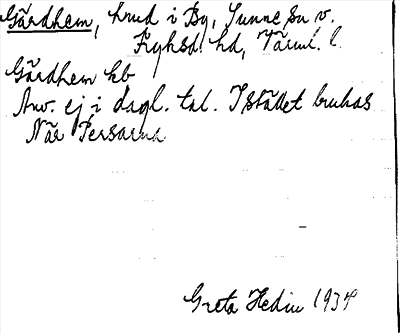 Gärdhem, hmd i By, Sunne sn v.
Fryksd. hd, Värml. l.
Gärdhem hb
Anv. ej i dagl. tal. I stället brukas
När Persarna
Greta Hedin 1934